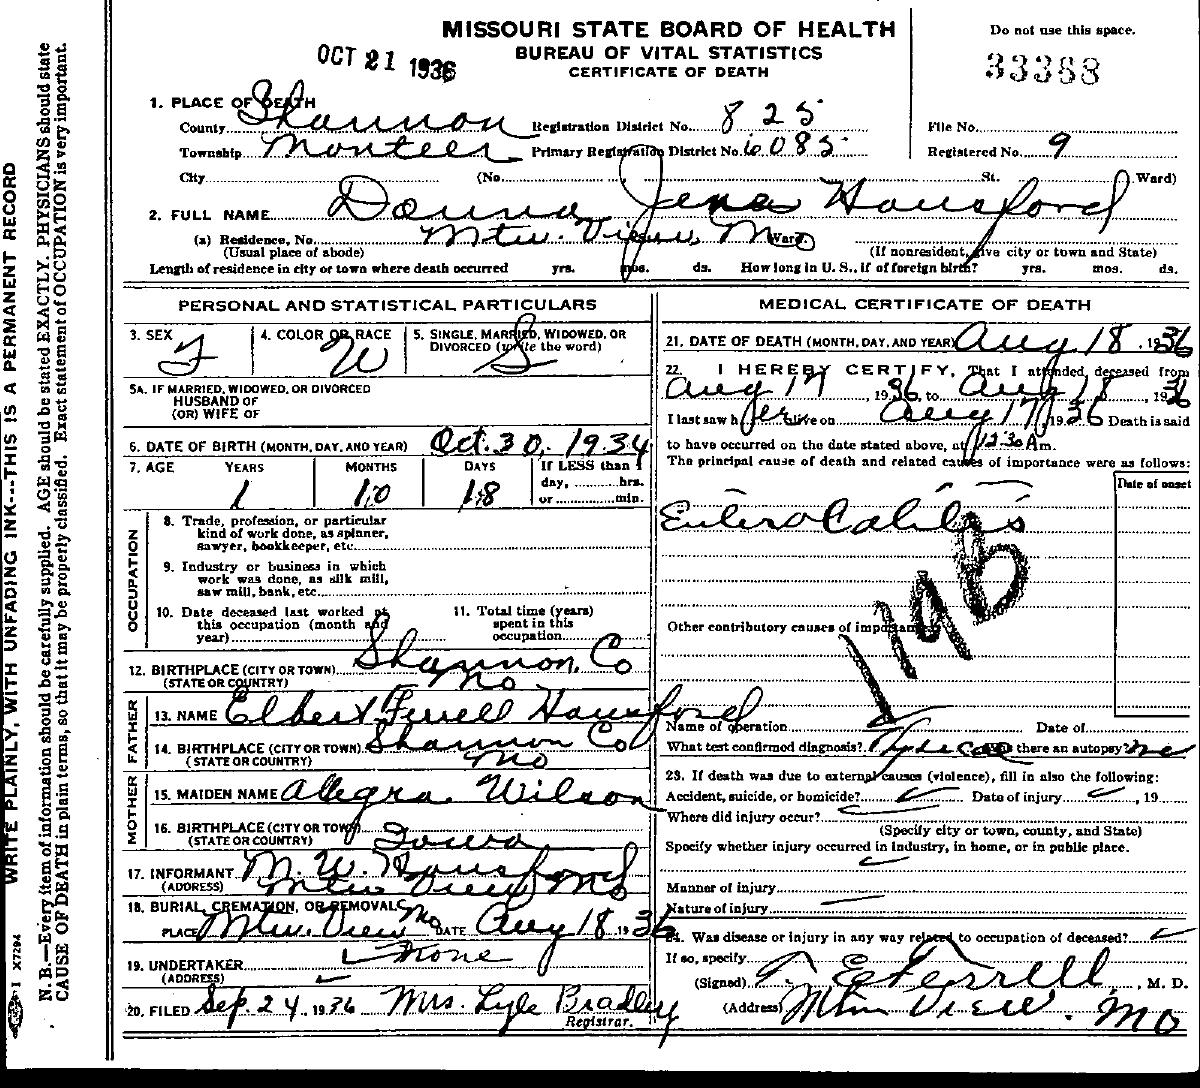 MISSOURI STATE BOARD OF HEALTH
BUREAU OF VITAL STATISTICS
CERTIFICATE OF DEATH
OCT 21 1936
Do not use this space.
33388
1. PLACE OF DEATH
County Shannon Registration District No. 825 File No.
Township Monteer Primary Registration District No. 6085 Registered No. 9
City (No. St. Ward)
2. FULL NAME Donna Jena Hounsford
(a) Residence, No. Mtn. View, Mo Ward.
(Usual place of abode) (If nonresident, give city or town and State)
Length of residence in city or town where death occurred yrs. mos. ds. How long in U. S., if of foreign birth? yrs. mos. ds.
PERSONAL AND STATISTICAL PARTICULARS
3. SEX F 4. COLOR OR RACE W 5. SINGLE, MARRIED, WIDOWED, OR DIVORCED (write the word) S
5A. IF MARRIED, WIDOWED, OR DIVORCED
HUSBAND OF
(OR) WIFE OF
6. DATE OF BIRTH (MONTH, DAY, AND YEAR) Oct. 30, 1934
7. AGE YEARS MONTHS DAYS If LESS than 1
1 10 18 day, hrs.
or min.
OCCUPATION
8. Trade, profession, or particular
kind of work done, as spinner,
sawyer, bookkeeper, etc.
9. Industry or business in which
work was done, as silk mill,
saw mill, bank, etc.
10. Date deceased last worked at
this occupation (month and
year)
11. Total time (years)
spent in this
occupation
12. BIRTHPLACE (CITY OR TOWN) Shannon, Co
(STATE OR COUNTRY) Mo
FATHER
13. NAME Elbert Ferrell Hounsford
14. BIRTHPLACE (CITY OR TOWN) Shannon Co
(STATE OR COUNTRY) Mo
MOTHER
15. MAIDEN NAME Allegra Wilson
16. BIRTHPLACE (CITY OR TOWN) Iowa
(STATE OR COUNTRY)
17. INFORMANT M. W. Hounsford
(ADDRESS) Mtn View Mo
18. BURIAL, CREMATION, OR REMOVAL Mo
PLACE Mtn. View DATE Aug 18 1936
19. UNDERTAKER None
(ADDRESS)
20. FILED Sep. 24, 1936 Mrs. Lyle Bradley
Registrar.
MEDICAL CERTIFICATE OF DEATH
21. DATE OF DEATH (MONTH, DAY, AND YEAR) Aug 18, 1936
22. I HEREBY CERTIFY, That I attended deceased from
Aug 17, 1936, to Aug 18, 1936
I last saw her alive on Aug 17, 1936 Death is said
to have occurred on the date stated above, at 12:30 A m.
The principal cause of death and related causes of importance were as follows:
Date of onset
Entero Colitis
119B
Other contributory causes of importance:
Name of operation Date of
What test confirmed diagnosis? Was there an autopsy? no
23. If death was due to external causes (violence), fill in also the following:
Accident, suicide, or homicide? Date of injury , 19
Where did injury occur?
(Specify city or town, county, and State)
Specify whether injury occurred in industry, in home, or in public place.
Manner of injury
Nature of injury
24. Was disease or injury in any way related to occupation of deceased?
If so, specify
(Signed) T. E. Ferrell, M. D.
(Address) Mtn View. Mo
WRITE PLAINLY, WITH UNFADING INK---THIS IS A PERMANENT RECORD
N. B.—Every item of information should be carefully supplied. AGE should be stated EXACTLY. PHYSICIANS should state
CAUSE OF DEATH in plain terms, so that it may be properly classified. Exact statement of OCCUPATION is very important.
I X7294